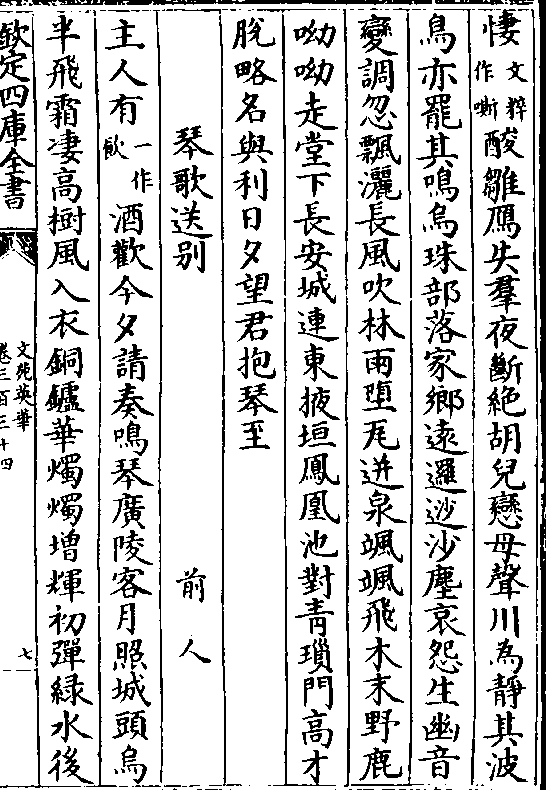 悽文粹作嘶酸雛鴈失羣夜斷絶胡兒戀母聲川為靜其波
鳥亦罷其鳴烏珠部落家鄉遠邏逤沙塵哀怨生幽音
變調忽飄灑長風吹林雨墮瓦迸泉颯颯飛木末野鹿
呦呦走堂下長安城連東掖垣鳳凰池對青瑣門高才
脫略名與利日夕望君抱琴至
琴歌送别 前人
主人有一作飲酒歡今夕請奏鳴琴廣陵客月照城頭烏
半飛霜凄高樹風入衣銅鑪華燭燭增輝初彈緑水後
欽定四庫全書
文苑英華
卷三百三十四
七